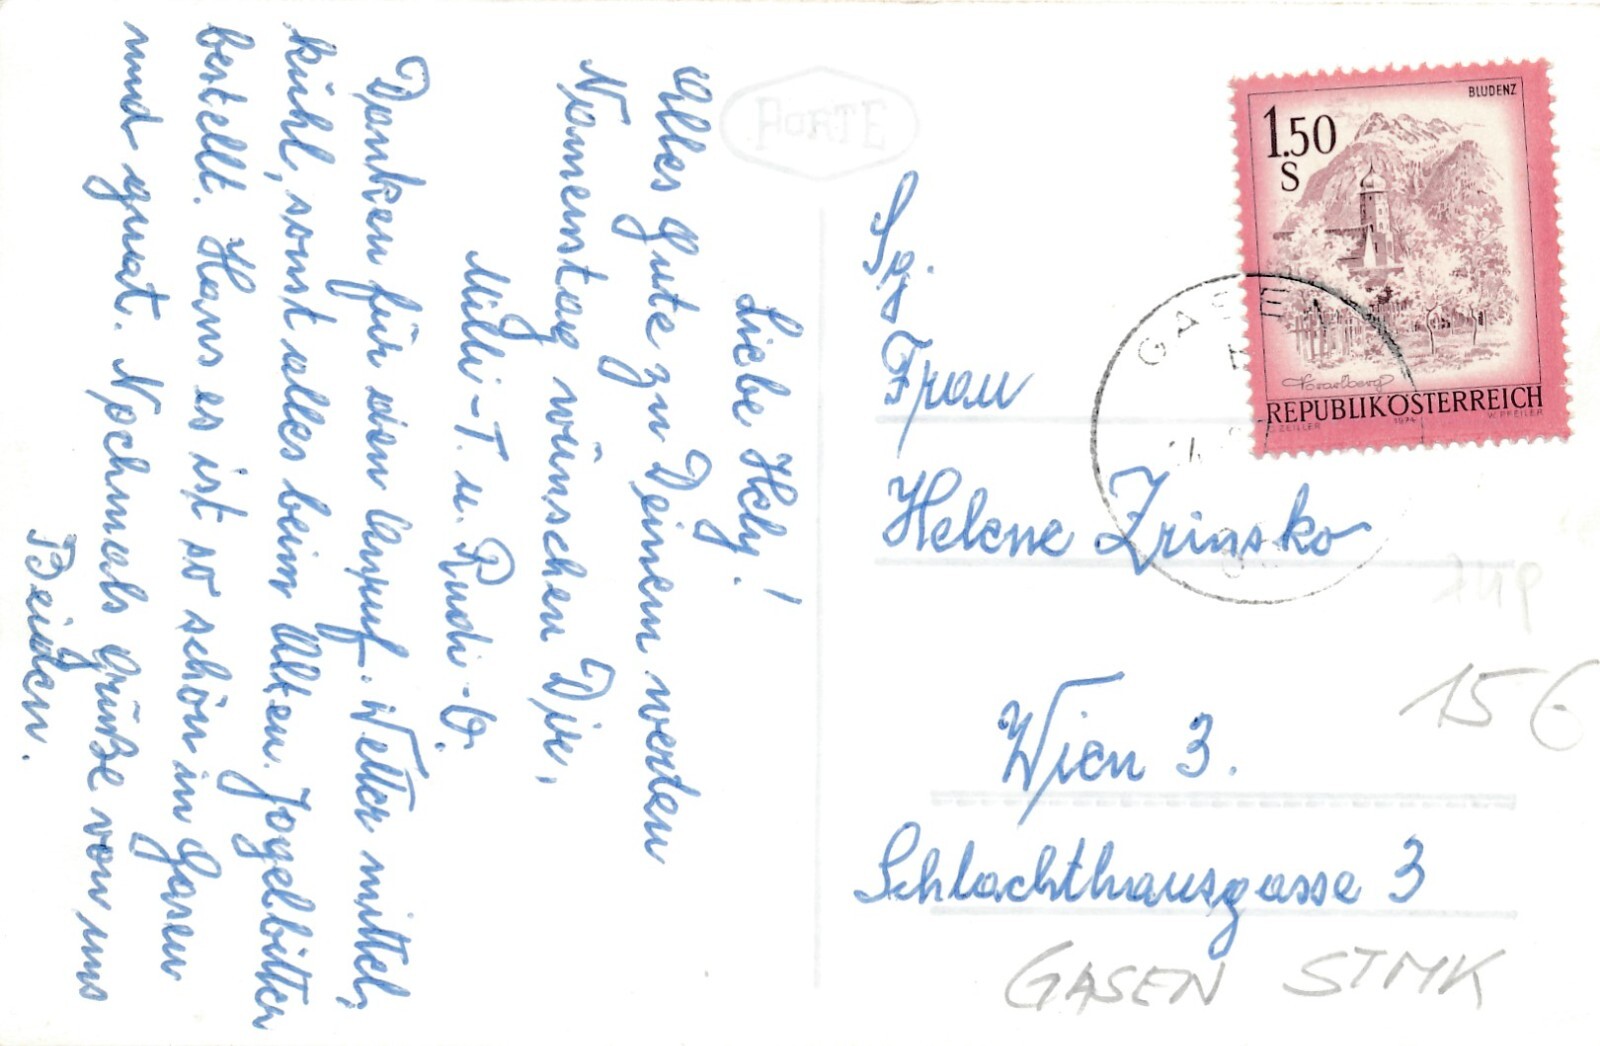 Liebe Hely!
Alles Gute zu Deinem werten
Namenstag wünschen Dir,
Milli-T. u. Rudi-O.
Danken für den Anruf. Wetter mittel,
kühl, sonst alles beim Alten. Jogelbitter
bestellt. Hans es ist so schön in Gasen
und guat. Nochmals Grüße von uns
Beiden.
PORTE
BLUDENZ
1.50
S
Vorarlberg
REPUBLIK ÖSTERREICH
ZEILLER 1974 W. PFEILER
GASEN
Frau
Helene Zrinsko
Wien 3.
Schlachthausgasse 3
15 €
GASEN STMK